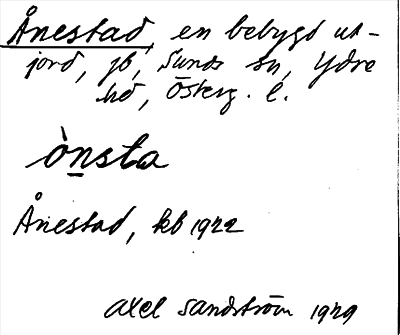 Ånestad, en bebygd ut-
jord, jb, Sunds sn, Ydre
hd, Österg. l.
ònsta
Ånestad, kb 1922
Axel Sandström 1929